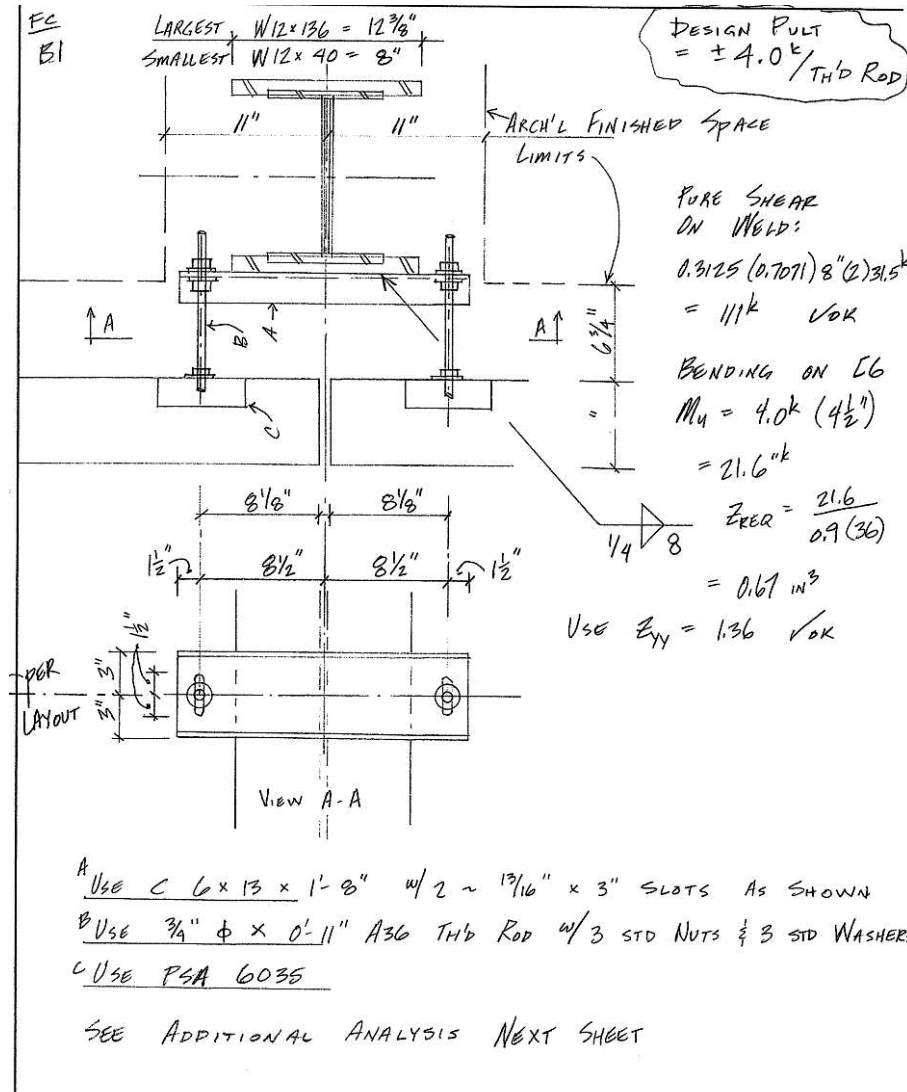 FC
B1
LARGEST W12×136 = 12 3/8"
SMALLEST W12×40 = 8"
DESIGN PULT
= ± 4.0k/TH'D ROD
11" 11"
ARCH'L FINISHED SPACE
LIMITS
PURE SHEAR
ON WELD:
0.3125 (0.7071) 8" (2) 31.5k
= 111k ✓OK
A A
B A C
6 3/4"
"
BENDING ON [6
Mu = 4.0k (4 1/2")
= 21.6"k
ZREQ = 21.6 / 0.9 (36)
= 0.67 IN³
USE Zyy = 1.36 ✓OK
1/4 8
8 1/8" 8 1/8"
1 1/2" 8 1/2" 8 1/2" 1 1/2"
1 1/2"
3"
3"
PER
LAYOUT
VIEW A-A
A USE C 6 × 13 × 1'-8" w/ 2 ~ 13/16" × 3" SLOTS AS SHOWN
B USE 3/4" φ × 0'-11" A36 TH'D ROD w/ 3 STD NUTS & 3 STD WASHERS
C USE PSA 6035
SEE ADDITIONAL ANALYSIS NEXT SHEET